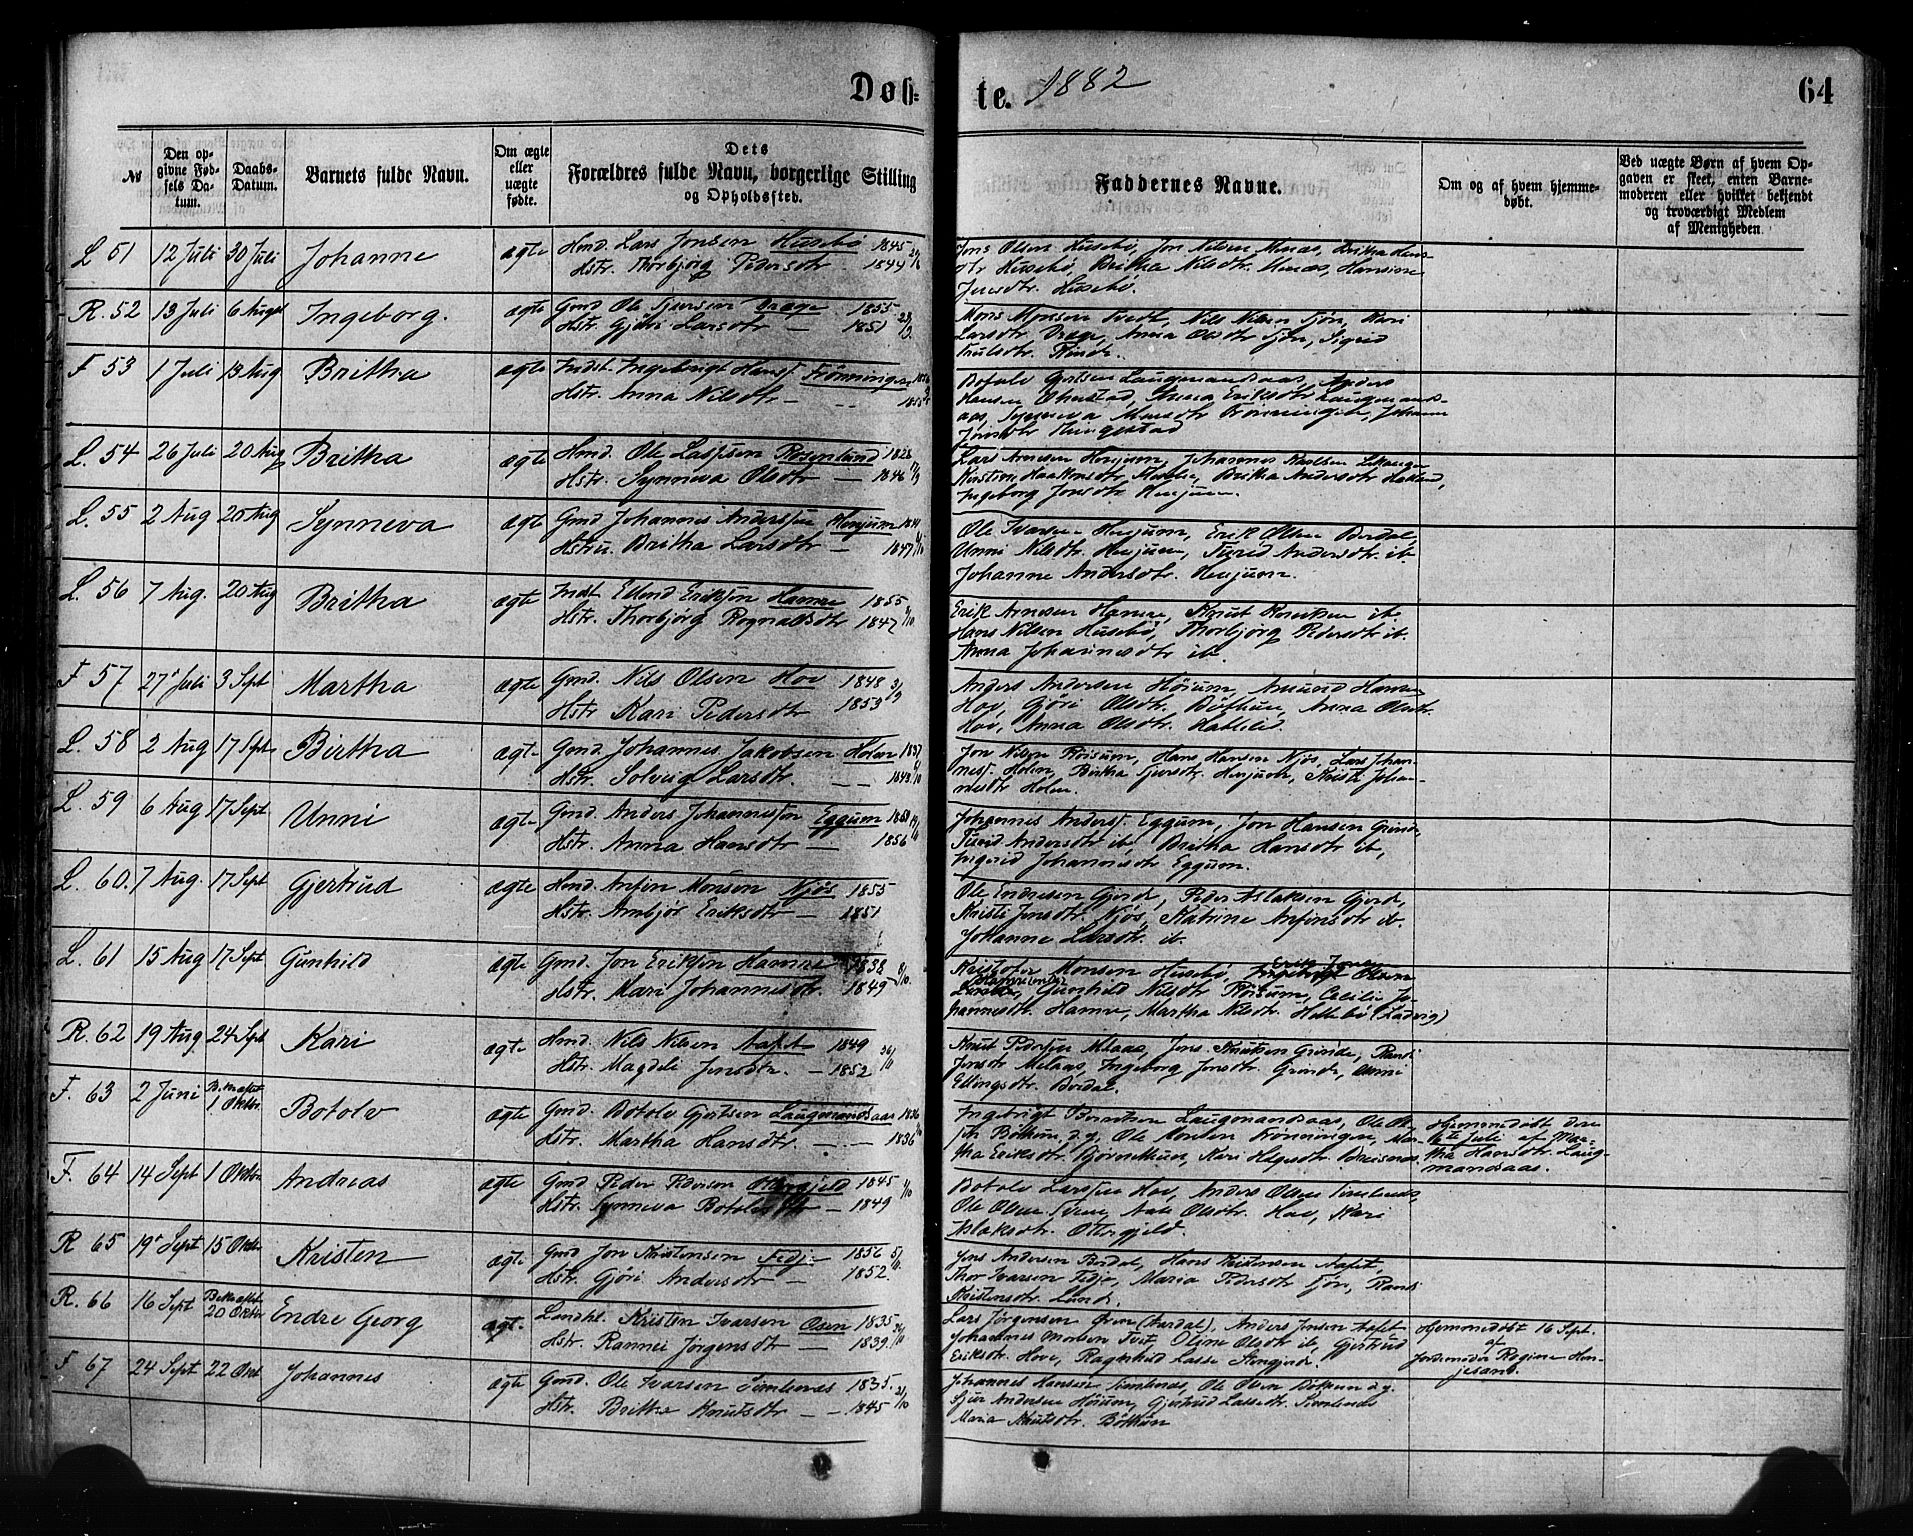 Døb-
te. 1882
64
№
Den op-
givne Fød-
sels Da-
tum.
Daabs-
Datum.
Barnets fulde Navn.
Om ægte
eller
uægte
fødte.
Dets
Forældres fulde Navn, borgerlige Stilling
og Opholdssted.
Faddernes Navne.
Om og af hvem hjemme-
døbt.
Ved uægte Børn af hvem Op-
gaven er skeet, enten Barne-
moderen eller hvilket bekjendt
og troværdigt Medlem
af Menigheden.
L 51 12 Juli 30 Juli Johanne ægte Hmd. Lars Jonsen Husebø 1845
Hstr. Thorbjørg Pedersdtr 1844
Jens Olsen Husebø, Jon Nilsen Menæs, Britha Hans
dtr Husebø, Britha Nilsdtr. Menæs, Hansine
Jensdtr. Husebø.
R. 52 13 Juli 6 August Ingeborg. ægte Gmd. Ole Sjursen Drage 1855
Hstr. Gjøri Larsdtr — 1851
Mons Monsen Tvedt, Nils Nilsen Fjøn, Kari
Larsdtr Drage, Anna Olsdtr Fjøn, Sigrid
Trulsdtr. Rinde.
F 53 1 Juli 13 Aug Britha ægte Indst. Ingebrigt Hanss. Frønningen
Hstr. Anna Nilsdtr —
Botolv Gjertsen Laugmandsaas, Anders
Hansen Ohnstad, Anna Eriksdtr Laugmands-
aas, Synneva Monsdtr Frønningen, Johanne
Jonsdtr Ringestad
L. 54 26 Juli 20 Aug Britha ægte Hmd. Ole Lassesen Rosenlund 1828
Hstr. Synneva Olsdtr — 1846
Lars Arnesen Henjum, Johannes Karlsen Lekanger
Kirstine Haakonsdtr, Britha Andersdtr
Ingeborg Jonsdtr Henjum.
L. 55 2 Aug 20 Aug Synneva ægte Gmd Johannes Anderssen Henjum
Hstru. Britha Larsdtr — 1847
Ole Ivarsen Henjum, Erik Olsen Bordal,
Unni Nilsdtr. Henjum, Sigrid Andersdtr. ib.
Johanne Andersdtr. Henjum.
L. 56 7 Aug. 20 Aug Britha ægte Indst Ellend Eriksen Hamre 1855
Hstr. Thorbjørg Rognaldsdtr 1847
Erik Arnesen Hamre, Knut Knutsen ib.
Hans Nilsen Husebø, Thorbjørg Pedersdtr ib.
Anna Johannesdtr ib.
F 57 27 Juli 3 Sept Martha ægte Gmd. Nils Olsen Hov 1848
Hstr Kari Pedersdtr 1853
Anders Andersen Høium, Amund Hansen
Hov, Gjøri Olsdtr. Bøthun, Anna Olsdtr.
Hov, Anna Olsdtr. Hatleli.
L. 58 2 Aug 17 Sept Birtha ægte Gmd. Johannes Jakobsen Holen 1837
Hstr. Solveig Larsdtr. — 1843
Jon Nilsen Frøisum, Hans Hansen Njøs, Lars Johan-
ness. Holen, Birtha Sjursdtr. Henjum, Kristi Johan-
nesdtr Holen.
L. 59 6 Aug 17 Sept Unni ægte Gmd. Anders Johannessen Eggum
Hstr. Anna Hansdtr — 1856
Johannes Anderss. Eggum, Jon Hansen Grinde,
Turid Andersdtr ib. Britha Hansdtr ib,
Ingrid Johannesdtr Eggum.
L. 60. 7 Aug. 17 Sept Gjertrud ægte Hmd. Anfin Monsen Njøs 1855
Hstr. Arnbjør Eriksdtr — 1851
Ole Endresen Gjerde, Peder Aslaksen Gjerde,
Kristi Jonsdtr. Njøs, Katrine Anfinsdtr ib.
Johanne Larsdtr. ib.
L. 61 15 Aug 17 Sept. Gunhild ægte Gmd. Jon Eriksen Hamre 1838
Hstr. Mari Johannesdtr. 1849
Kristofer Monsen Husebø, Erik Jonsen
Hamre, Gunhild Nilsdtr Frøisum, Cecilie Jo-
hannesdtr. Hamre, Martha Nilsdtr. Hellebø (Ladvig)
R. 62 19 Aug. 24 Sept Kari ægte Hmd. Nils Nilsen Aafet 1849
Hstr. Magdeli Jensdtr. — 1852
Knut Pedersen Melaas, Jens Knutsen Grinde, Randi
Jonsdtr Melaas, Ingeborg Jonsdtr. Grinde, Unni
Ellingsdtr. Bordal.
F. 63 2 Juni Bekræftet 1 Oktbr. Botolv ægte Gmd. Botolv Gjertsen Laugmandsaas 1836
Hstr. Martha Hansdtr. — 1836
Ingebrigt Berntsen Laugmandsaas, Ole Ol-
sen Bøthun d.y, Ole Monsen Frønningen, Mar-
tha Eriksdtr. Bjørnethun, Kari Helgesdtr. Breisnæs.
Hjemmedøbt den
te Juli af Mar-
tha Hansdtr. Laug-
mandsaas.
F. 64 14 Sept 1 Oktbr Andreas ægte Gmd Peder Pedersen Ottergjeld 1845
Hstr. Synneva Botolvsdtr — 1849
Botolv Larssen Hov, Anders Olsen Simlenæs
Ole Olsen, Aase Olsdtr. Hov, Kari
Aslaksdtr. Ottergjeld.
R 65 19 Sept 15 Oktbr Kristen ægte Gmd Jon Kristensen Fedje 1856
Hstr. Gjøri Andersdtr — 1852.
Jens Andersen Bordal, Hans Kristensen Aafet,
Thor Ivarsen Fedje, Maria Pedersdtr Fjøn, Randi
Kristensdtr. Lunde.
R. 66 16 Sept Bekræftet 20 Oktbr Endre Georg ægt. Landhl. Kristen Ivarsen Olsen 1835
Hstr. Rannei Jørgensdtr — 1839.
Lars Jørgensen Øren (Aardal), Anders Jensen Aafet
Johannes Monsen Tvet, Oline Olsdtr ib, Gjertrud
Eriksdtr. Hove, Ragnhild Lasse Stengjerde.
Hjemmedøbt 16 Sept.
af
Jordemoder Regine Hen-
jesand.
F 67 24 Sept 22 Okt Johannes ægte Gmd. Ole Ivarsen Simlenæs 1835.
Hstr. Britha Knutsdtr — 1845
Johannes Hansen Simlenæs, Ole Olsen Bøthun d.y.
Sjur Andersen Høium, Gjertrud Lassedtr. Simlenæs
Maria Knutsdtr. Bøthun